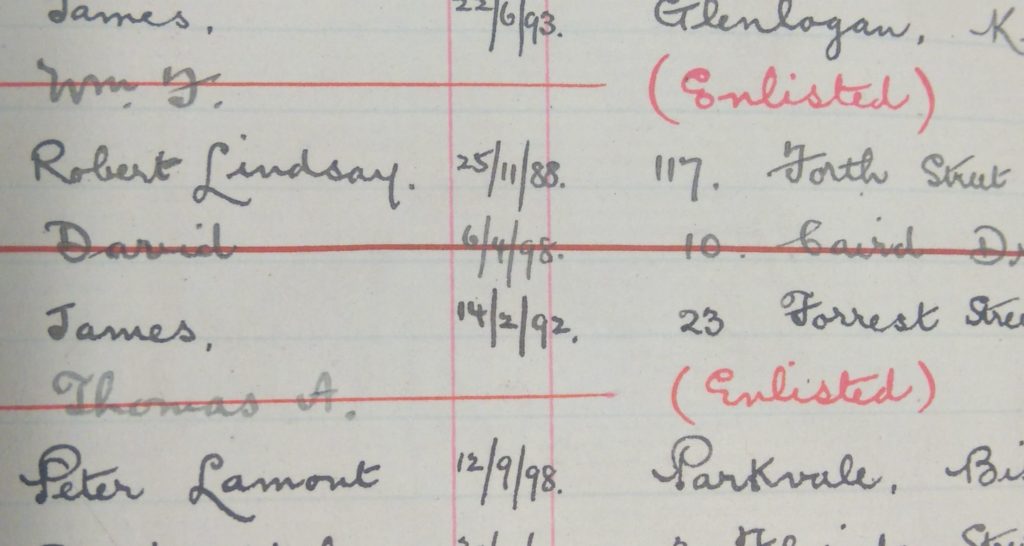 James, 22/6/93. Glenlogan, K
Wm. Y. (Enlisted)
Robert Lindsay. 25/11/88. 117. Forth Street
David 6/4/98. 10. Caird D
James, 14/2/92. 23 Forrest Stree
Thomas A. (Enlisted)
Peter Lamont 12/9/98. Parkvale, Bi